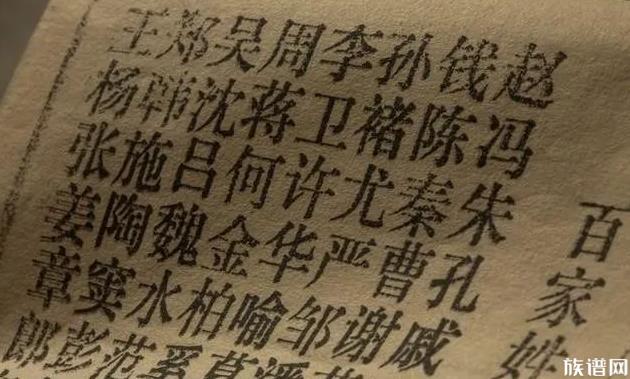 百家姓
赵钱孙李周吴郑王
冯陈褚卫蒋沈韩杨
朱秦尤许何吕施张
孔曹严华金魏陶姜
戚谢邹喻柏水窦章
潘葛奚范彭郎
族谱网